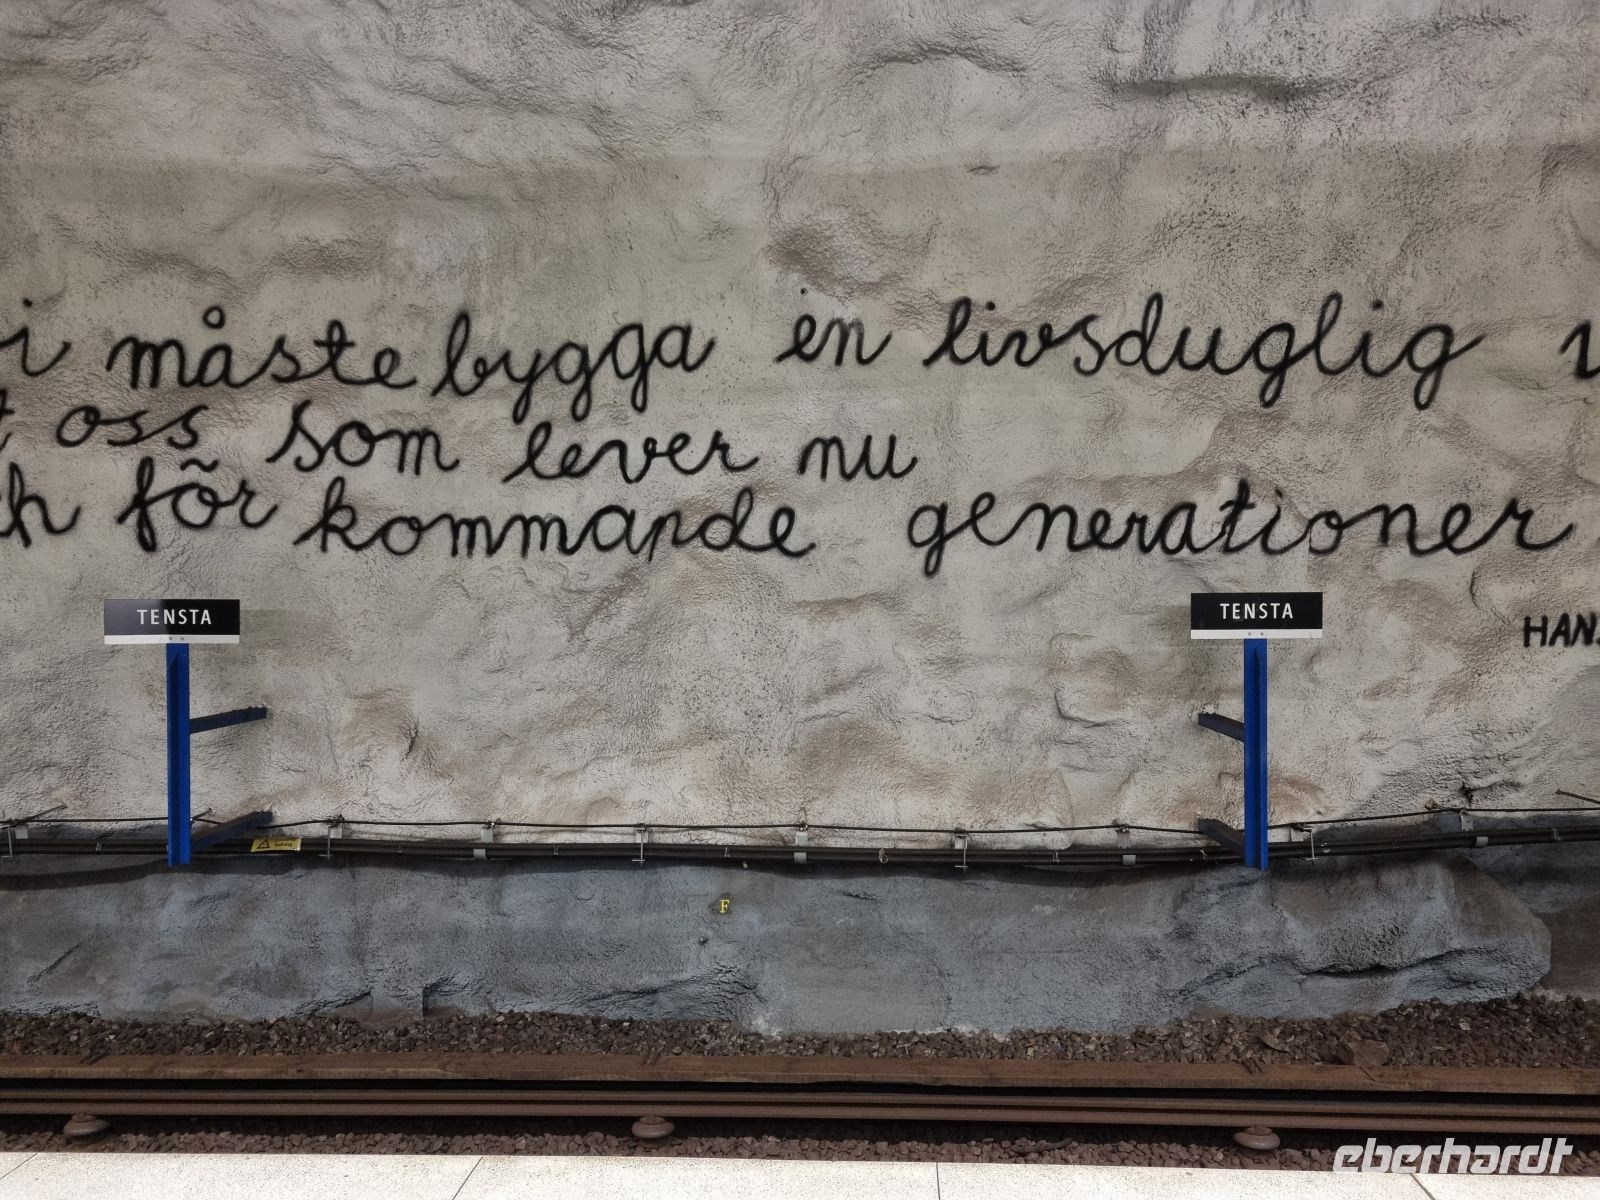 i måste bygga en livsduglig v
t oss som lever nu
ch för kommande generationer
TENSTA
TENSTA
HANS
F
eberhardt